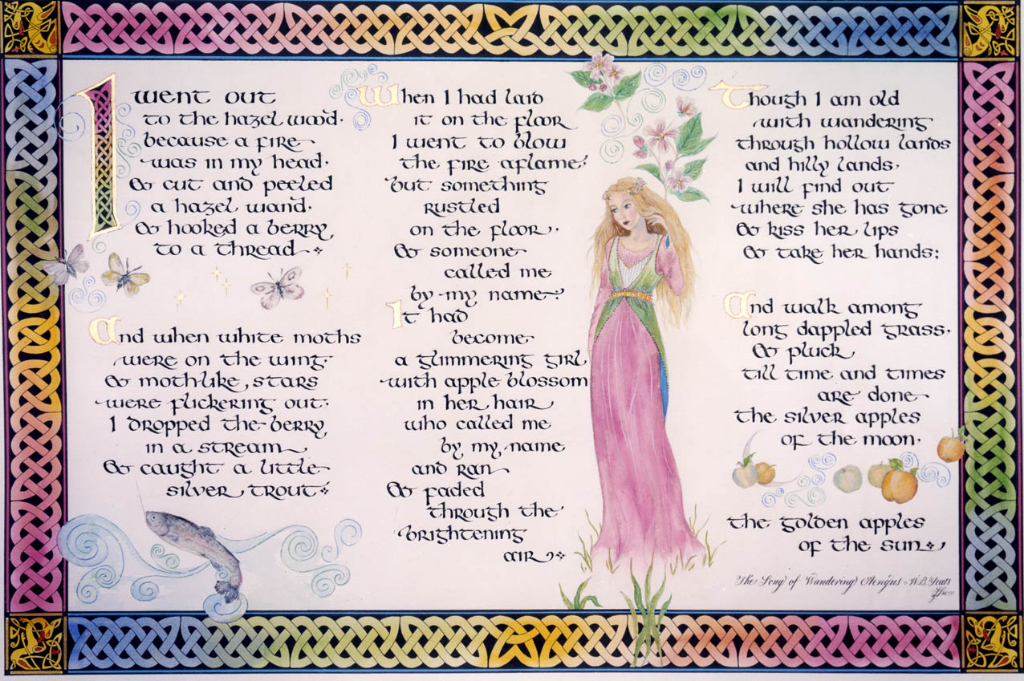 I went out
to the hazel wood.
because a fire
was in my head.
& cut and peeled
a hazel wand.
& hooked a berry
to a thread
And when white moths
were on the wing.
& moth-like, stars
were flickering out.
I dropped the berry
in a stream
& caught a little
silver trout.
When I had laid
it on the floor
I went to blow
the fire aflame,
but something
rustled
on the floor.
& someone
called me
by my name.
It had
become
a glimmering girl
with apple blossom
in her hair
who called me
by my name
and ran
& faded
through the
brightening
air
Though I am old
with wandering
through hollow lands
and hilly lands.
I will find out
where she has gone
& kiss her lips
& take her hands;
And walk among
long dappled grass.
& pluck
till time and times
are done
the silver apples
of the moon.
the golden apples
of the sun.
The Song of Wandering Aengus W.B. Yeats